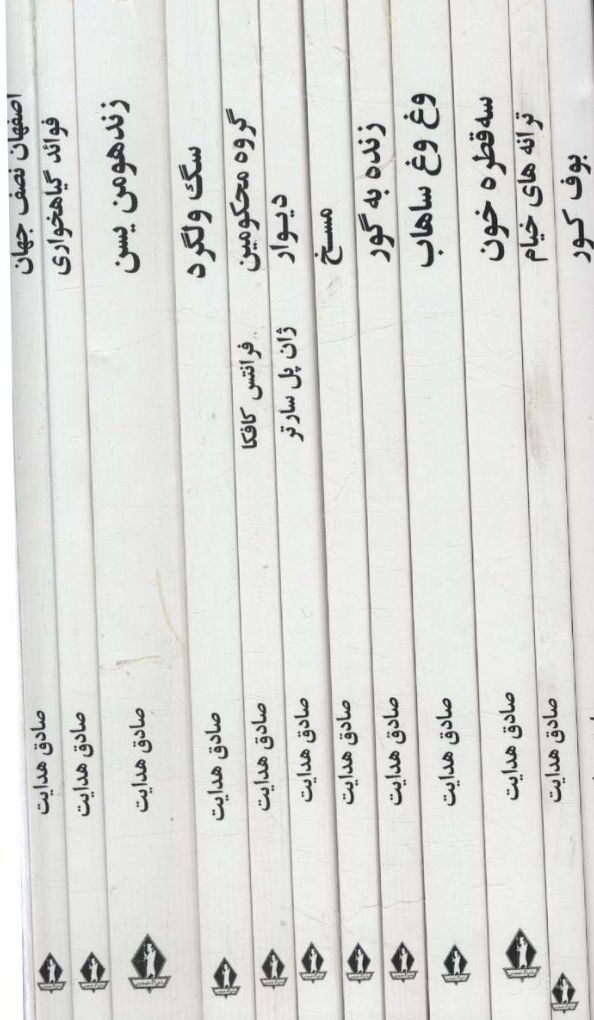 اصفهان نصف جهان
صادق هدایت
فوائد گیاهخواری
صادق هدایت
زندهومن یسن
صادق هدایت
سگ ولگرد
صادق هدایت
گروه محکومین
فرانتس کافکا
صادق هدایت
دیوار
ژان پل سارتر
صادق هدایت
مسخ
صادق هدایت
زنده به گور
صادق هدایت
وغ وغ ساهاب
صادق هدایت
سه قطره خون
صادق هدایت
ترانه های خیام
صادق هدایت
بوف کور